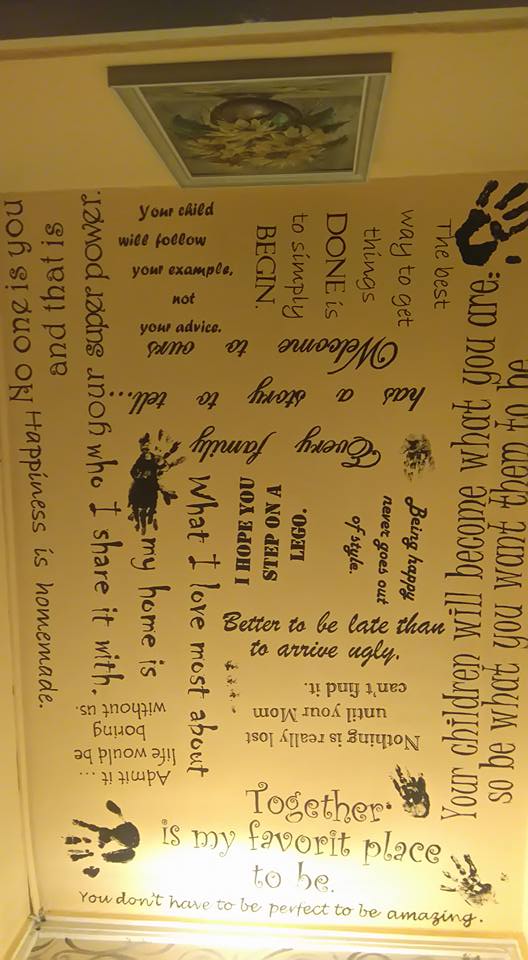 Your child
will follow
your example,
not
your advice.
The best
way to get
things
DONE is
to simply
BEGIN.
No one is you
and that is
your super power.
Every family
has a story to tell...
Welcome to ours
Your children will become what you are:
so be what you want them to be
Being happy
never goes out
of style.
I HOPE YOU
STEP ON A
LEGO.
What I love most about
my home is
who I share it with.
Happiness is homemade.
Better to be late than
to arrive ugly.
Nothing is really lost
until your Mom
can't find it.
Admit it...
life would be
boring
without us.
Together.
is my favorit place
to be.
You don't have to be perfect to be amazing.